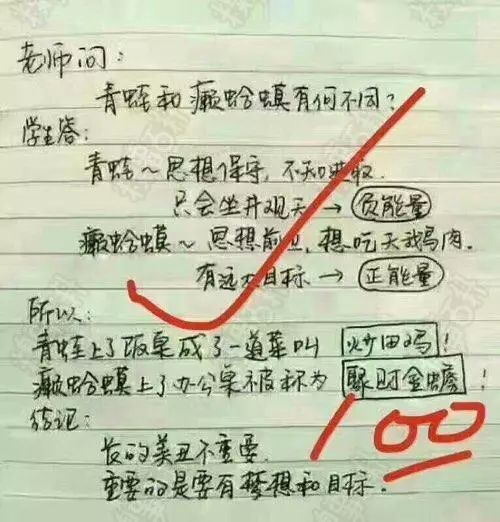 老师问：
青蛙和癞蛤蟆有何不同？
学生答：
青蛙～思想保守，不知进取.
只会坐井观天→负能量
癞蛤蟆～思想前卫，想吃天鹅肉.
有远大目标→正能量
所以：
青蛙上了饭桌成了一道菜叫 炒田鸡！
癞蛤蟆上了办公桌被称为 聚财金蟾！
结论：
长的美丑不重要.
重要的是要有梦想和目标.
100